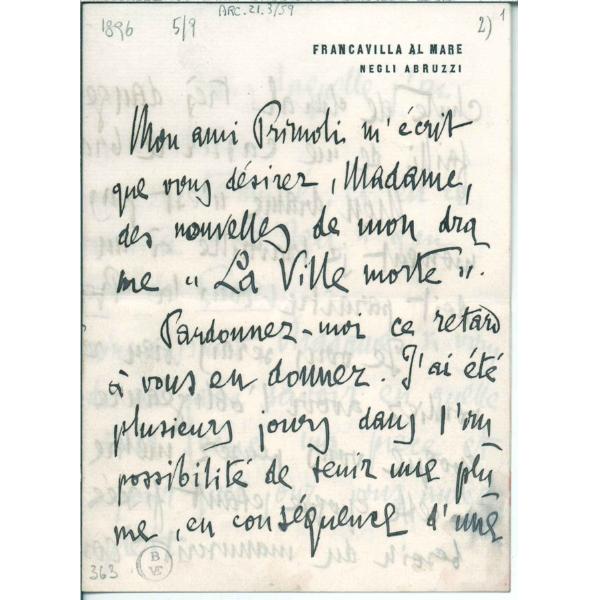 ARC.21.3/59
1896 5/9 2) 1
FRANCAVILLA AL MARE
NEGLI ABRUZZI
Mon ami Primoli m'écrit
que vous désirez, Madame,
des nouvelles de mon dra
me "La Ville morte".
Pardonnez-moi ce retard
à vous en donner. J'ai été
plusieurs jours dans l'im
possibilité de tenir une plu
me, en conséquence d'une
363
B
VE